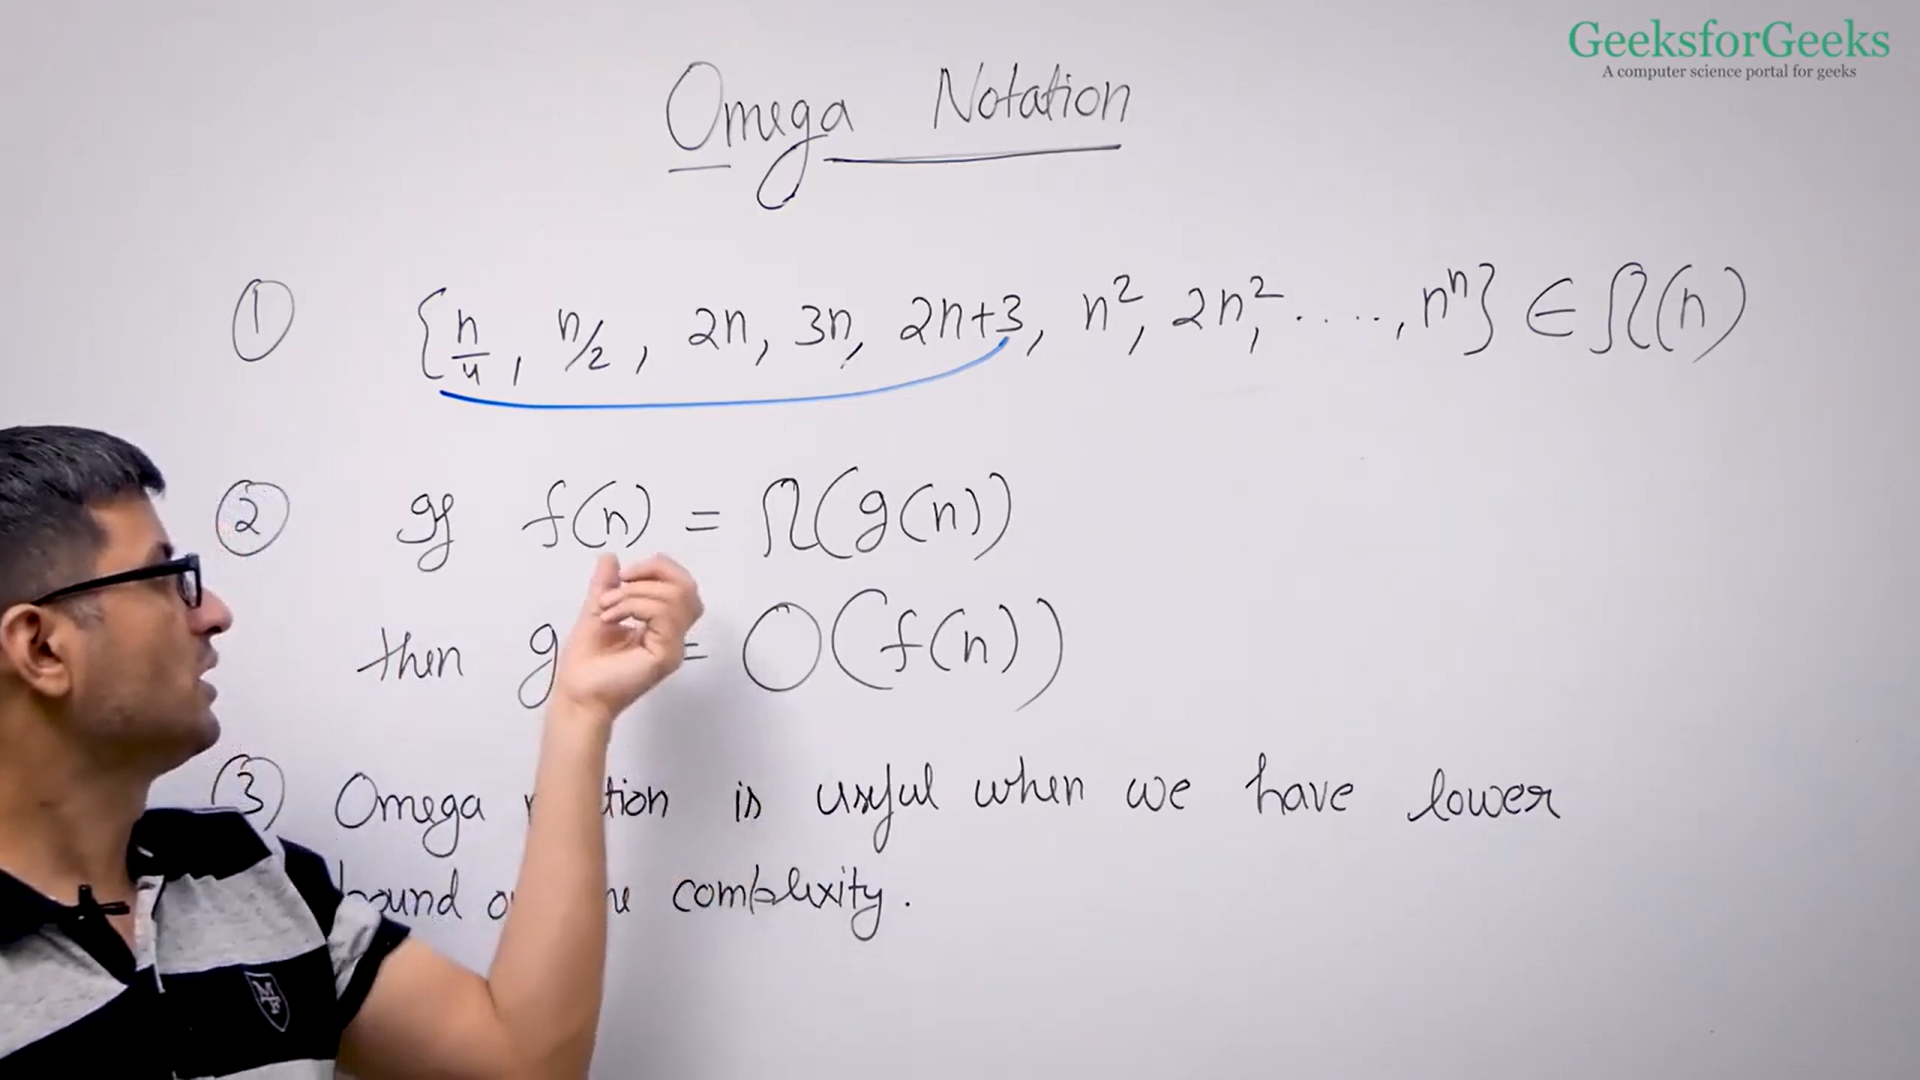 GeeksforGeeks
A computer science portal for geeks
Omega Notation
① {n/4, n/2, 2n, 3n, 2n+3, n², 2n², ...., nⁿ} ∈ Ω(n)
② If f(n) = Ω(g(n))
then g = O(f(n))
③ Omega is useful when we have lower
bound complexity.